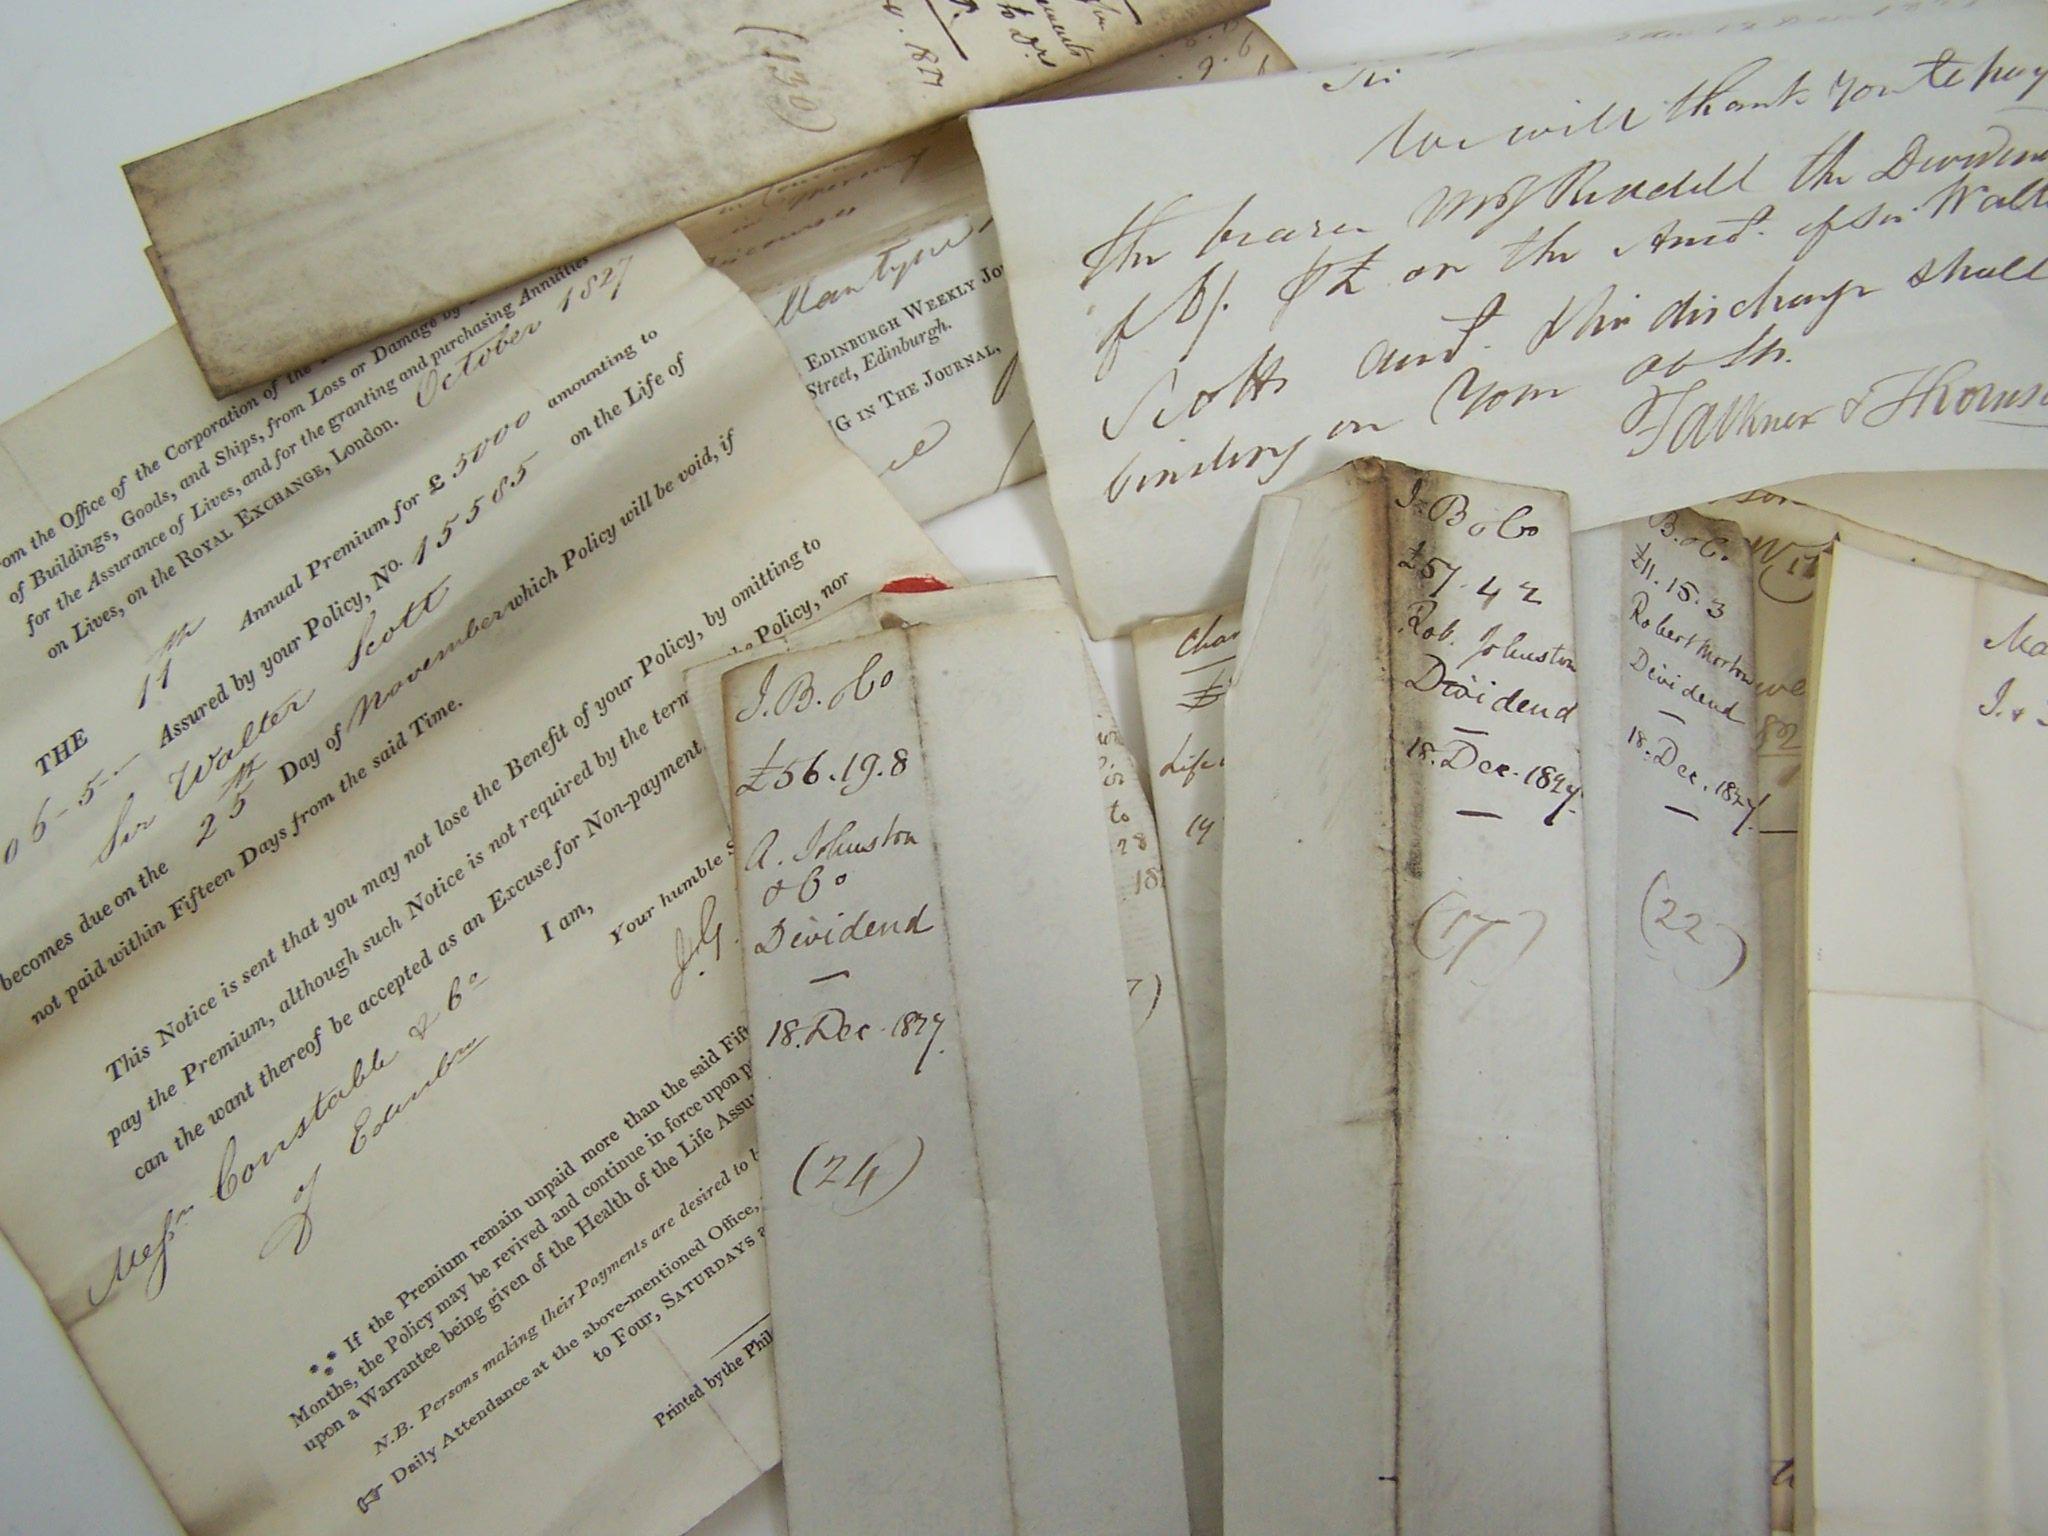 (130)
to Drs
Sir
We will thank you to pay
the bearer Riddell the
on the Amt. of Sir
Scotts and discharge shall
binding on your
Falkner &
EDINBURGH WEEKLY
Street, Edinburgh.
IN THE JOURNAL,
the Office of the Corporation of the
of Buildings, Goods, and Ships, from Loss or Damage by
for the Assurance of Lives, and for the granting and purchasing Annuities
on Lives, on the ROYAL EXCHANGE, London. October 1827
THE 11th Annual Premium for £ 5000 amounting to
6-5-- Assured by your Policy, No. 15585 on the Life of
Sir Walter Scott
becomes due on the 25th Day of November which Policy will be void, if
not paid within Fifteen Days from the said Time.
This Notice is sent that you may not lose the Benefit of your Policy, by omitting to
pay the Premium, although such Notice is not required by the Policy, nor
can the want thereof be accepted as an Excuse for Non-payment.
I am,
Your humble
J. G.
Messrs Constable & Co
of Edinbro
If the Premium remain unpaid more than the said
Months, the Policy may be revived and continue in force upon
upon a Warrantee being given of the Health of the Life
N.B. Persons making their Payments are desired to
☞ Daily Attendance at the above-mentioned Office,
to Four, SATURDAYS
Printed by the
J. B. & Co
£56.19.8
A. Johnston
& Co
Dividend
—
18. Dec. 1827.
(24)
J. B & Co
£57.4.2
Rob. Johnston
Dividend
—
18. Dec. 1827.
—
(17)
B. & Co.
£11.15.3
Robert Morton
Dividend
—
18. Dec. 1827.
—
(22)